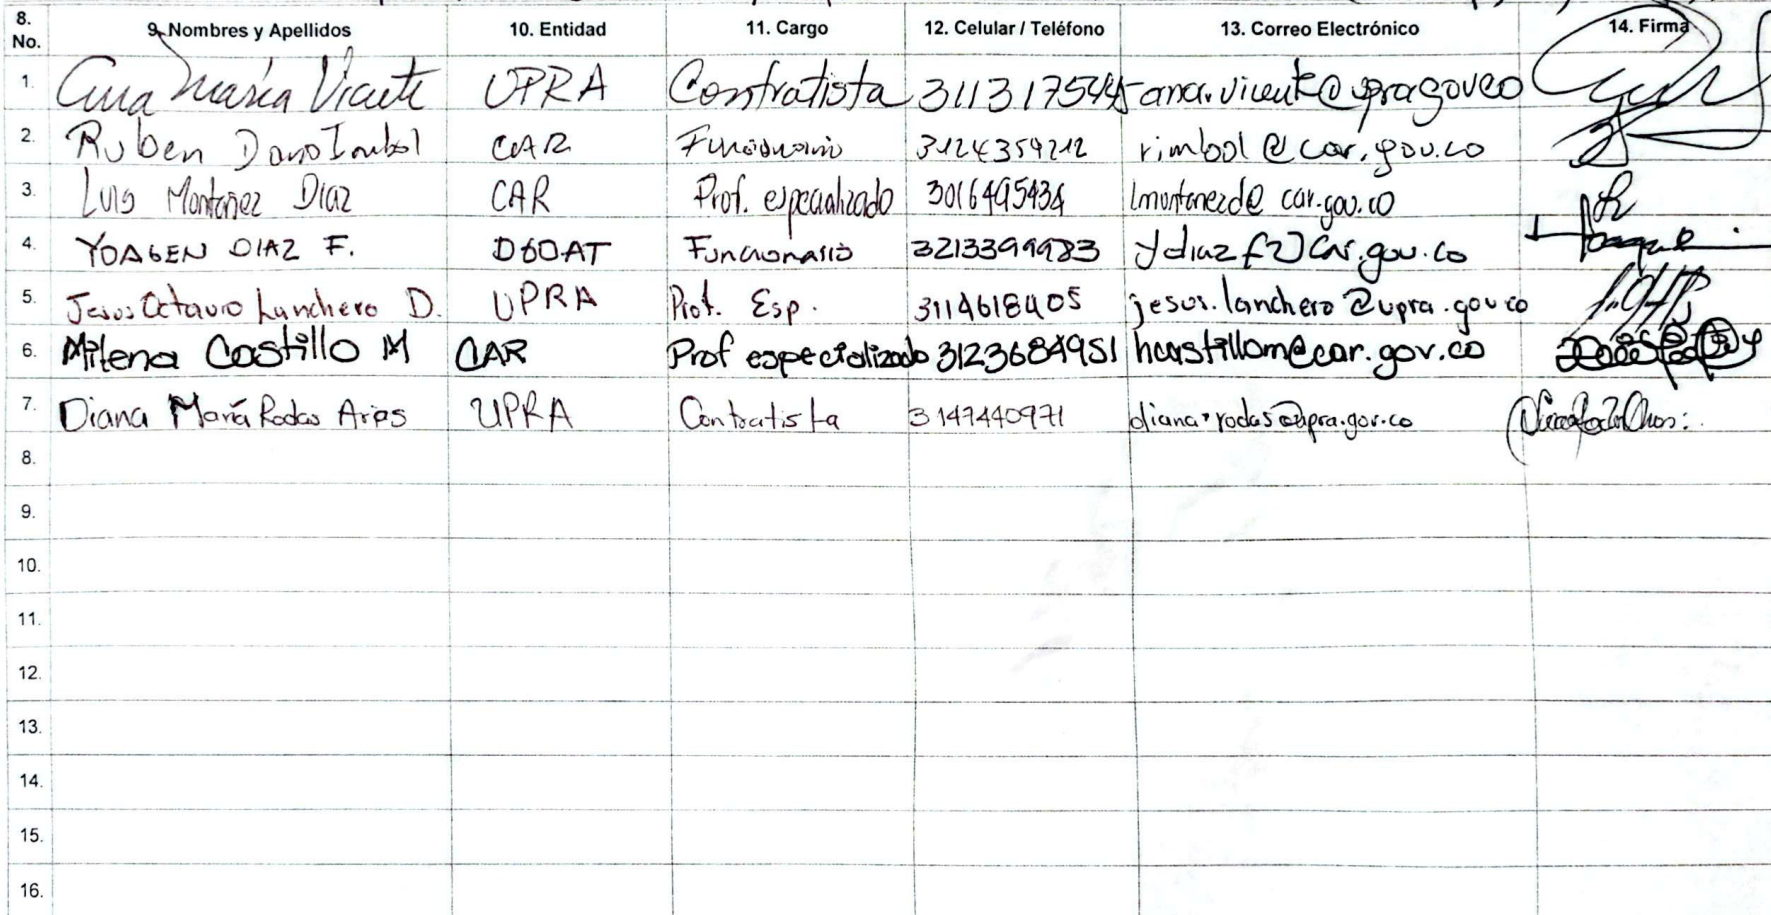 8. No. 9. Nombres y Apellidos 10. Entidad 11. Cargo 12. Celular / Teléfono 13. Correo Electrónico 14. Firma
1. Ana María Vicente UPRA Contratista ana.vicente@upra.gov.co
2. Ruben Dario Imbol CAR Funcionario 3124359212 rimbol@car.gov.co
3. Luis Montañez Diaz CAR Prof. especializado 3016495434 lmontanezd@car.gov.co
4. YOAGEN DIAZ F. Funcionario 3213399983
5. Jesus Octavio Lanchero D. UPRA Prof. Esp. 3114618405 jesus.lanchero@upra.gov.co
6. Milena Castillo M CAR Prof especializado 3123684951 hcastillom@car.gov.co
7. Diana María Rodas Arias UPRA Contratista 3147440971 diana.rodas@upra.gov.co
8.
9.
10.
11.
12.
13.
14.
15.
16.